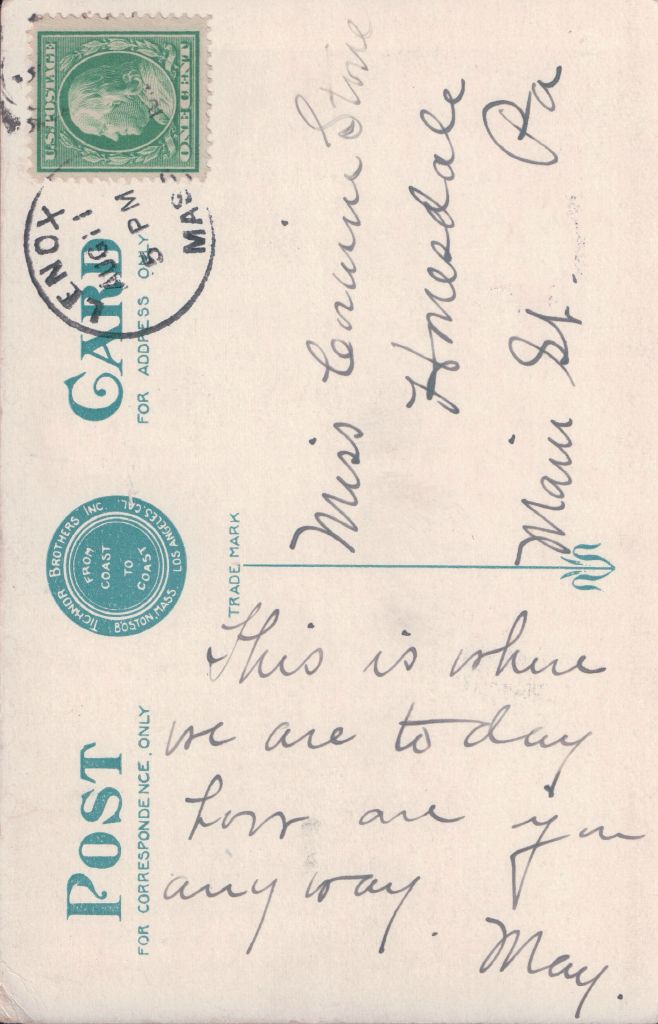 POST CARD
FOR CORRESPONDENCE ONLY
FOR ADDRESS ONLY
TICHNOR BROTHERS INC.
BOSTON, MASS. LOS ANGELES, CAL.
FROM
COAST
TO
COAST
TRADE MARK
U.S. POSTAGE
ONE CENT
LENOX
AUG 11
5 PM
MASS
This is where
we are to day
how are you
any way.
May.
Miss Corinne Stone
Honesdale
Main St. Pa